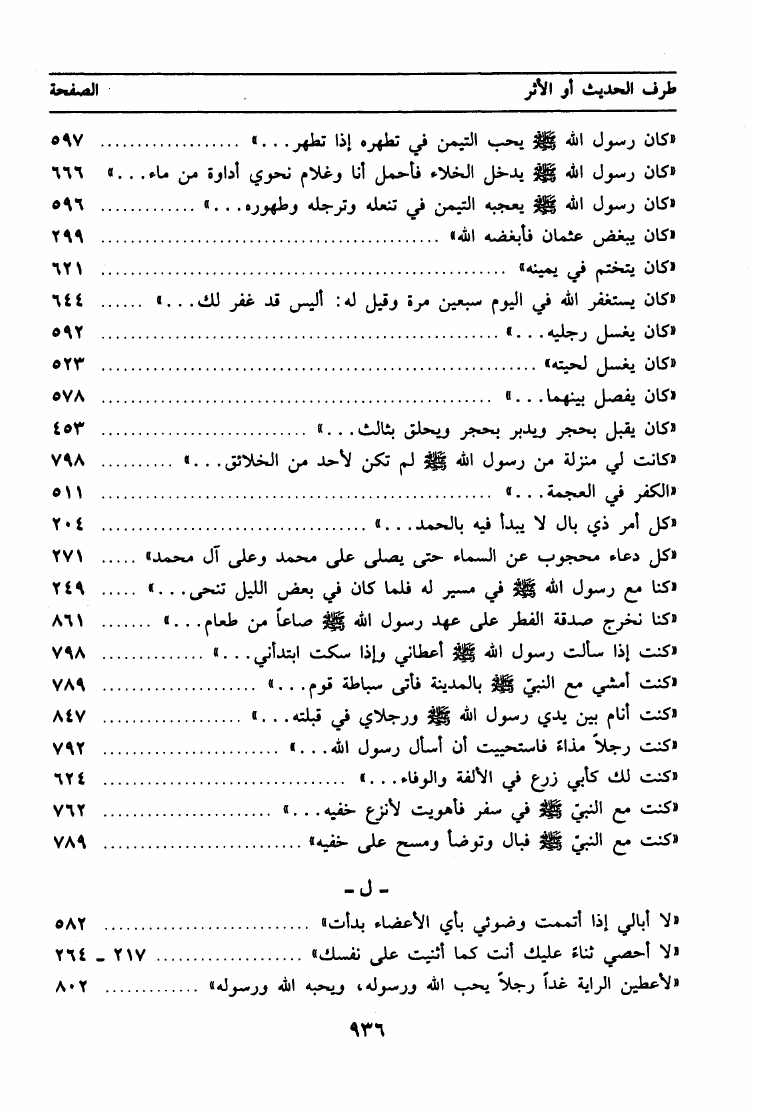 طرف الحديث أو الأثر الصفحة
«كان رسول الله ﷺ يحب التيمن في تطهره إذا تطهر...» ................... ٥٩٧
«كان رسول الله ﷺ يدخل الخلاء فأحمل أنا وغلام نحوي أداوة من ماء...» ٦٦٦
«كان رسول الله ﷺ يعجبه التيمن في تنعله وترجله وطهوره...» ............. ٥٩٦
«كان يبغض عثمان فأبغضه الله» ............................................. ٢٩٩
«كان يتختم في يمينه» ...................................................... ٦٢١
«كان يستغفر الله في اليوم سبعين مرة وقيل له: أليس قد غفر لك...» ...... ٦٤٤
«كان يغسل رجليه...» ..................................................... ٥٩٢
«كان يغسل لحيته» .......................................................... ٥٢٣
«كان يفصل بينهما...» .................................................... ٥٧٨
«كان يقبل بحجر ويدبر بحجر ويحلق بثالث...» ........................... ٤٥٣
«كانت لي منزلة من رسول الله ﷺ لم تكن لأحد من الخلائق...» .......... ٧٩٨
«الكفر في العجمة...» .................................................... ٥١١
«كل أمر ذي بال لا يبدأ فيه بالحمد...» ................................. ٢٠٤
«كل دعاء محجوب عن السماء حتى يصلى على محمد وعلى آل محمد» ..... ٢٧١
«كنا مع رسول الله ﷺ في مسير له فلما كان في بعض الليل تنحى...» ..... ٢٤٩
«كنا نخرج صدقة الفطر على عهد رسول الله ﷺ صاعاً من طعام...» ....... ٨٦١
«كنت إذا سألت رسول الله ﷺ أعطاني وإذا سكت ابتدأني...» .............. ٧٩٨
«كنت أمشي مع النبيّ ﷺ بالمدينة فأتى سباطة قوم...» ..................... ٧٨٩
«كنت أنام بين يدي رسول الله ﷺ ورجلاي في قبلته...» ................... ٨٤٧
«كنت رجلاً مذاءً فاستحييت أن أسأل رسول الله...» ........................ ٧٩٢
«كنت لك كأبي زرع في الألفة والوفاء...» .................................. ٦٢٤
«كنت مع النبيّ ﷺ في سفر فأهويت لأنزع خفيه...» ....................... ٧٦٢
«كنت مع النبيّ ﷺ فبال وتوضأ ومسح على خفيه» ........................... ٧٨٩
- ل -
«لا أبالي إذا أتممت وضوئي بأي الأعضاء بدأت» ............................ ٥٨٢
«لا أحصي ثناءً عليك أنت كما أثنيت على نفسك» .................... ٢١٧ - ٢٦٤
«لأعطين الراية غداً رجلاً يحب الله ورسوله، ويحبه الله ورسوله» ............. ٨٠٢
٩٣٦